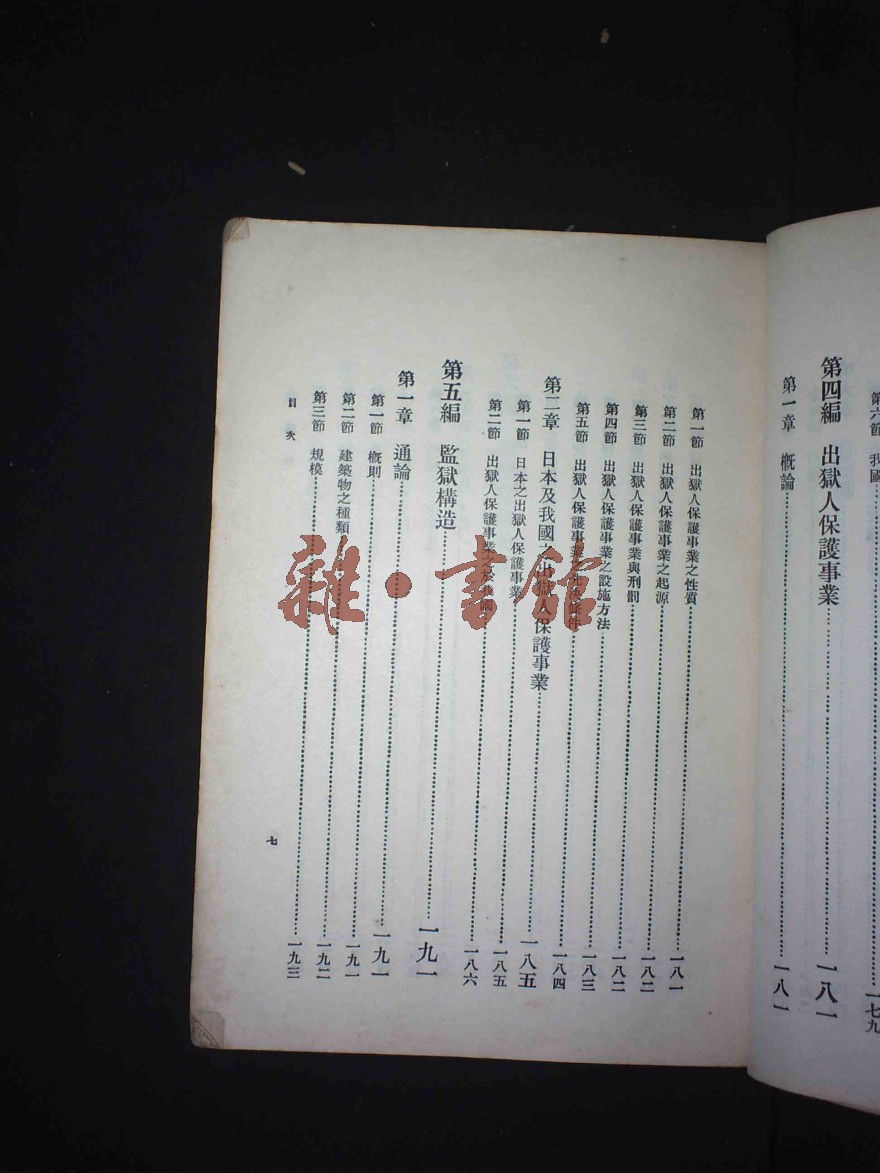 第六節 我國……一七九
第四編 出獄人保護事業……一八一
第一章 概論……一八一
第一節 出獄人保護事業之性質……一八一
第二節 出獄人保護事業之起源……一八二
第三節 出獄人保護事業與刑罰……一八二
第四節 出獄人保護事業之設施方法……一八三
第五節 出獄人保護事業之先決條件……一八四
第二章 日本及我國之出獄人保護事業……一八五
第一節 日本之出獄人保護事業……一八五
第二節 出獄人保護事業之於我國……一八六
第五編 監獄構造……一九一
第一章 通論……一九一
第一節 概則……一九一
第二節 建築物之種類……一九二
第三節 規模……一九三
目次
七
雜·書館